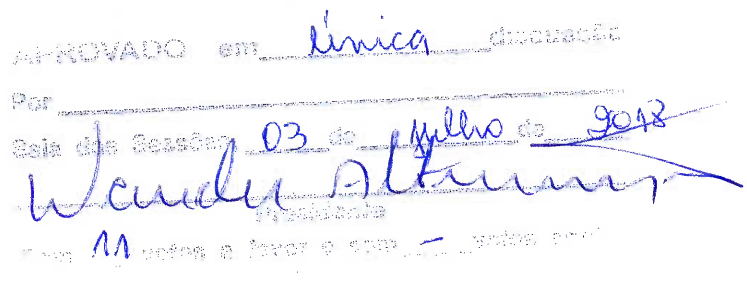 APROVADO em única discussão
Por
Sala das Sessões 03 de julho de 2018
Presidente
Com 11 votos a favor e com - votos